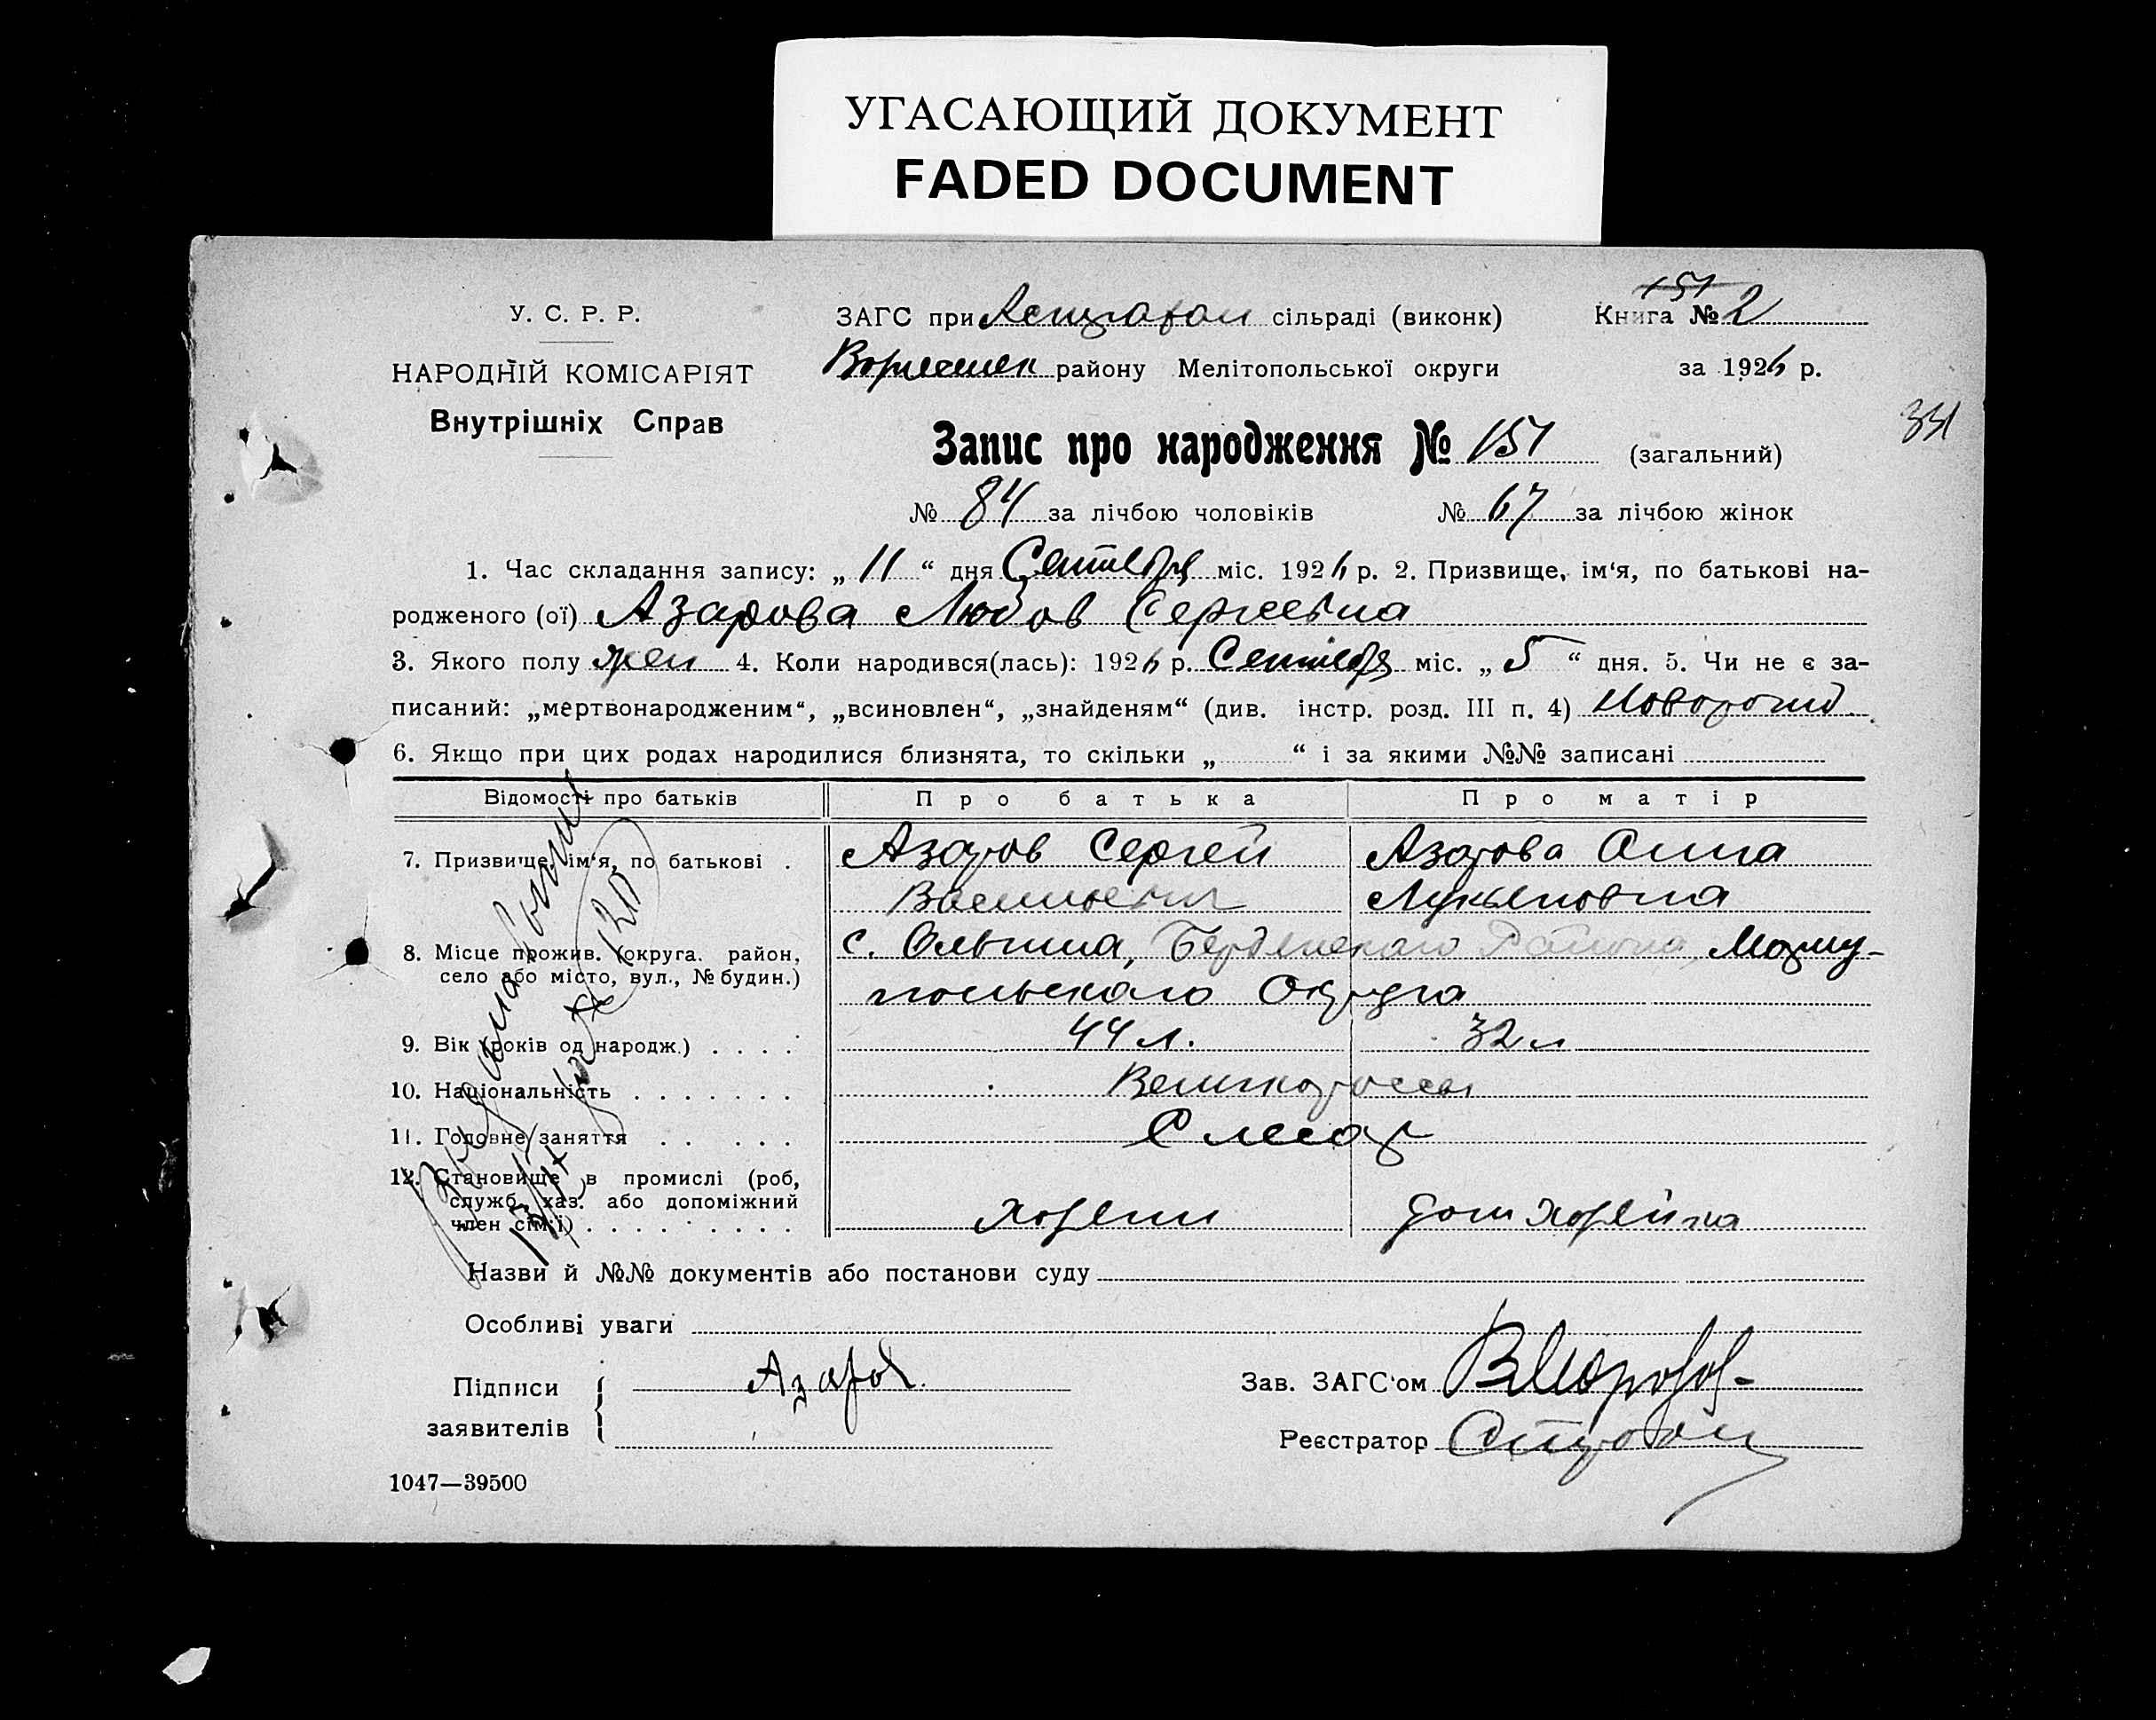 УГАСАЮЩИЙ ДОКУМЕНТ
FADED DOCUMENT
У. С. Р. Р.
НАРОДНІЙ КОМІСАРІЯТ
Внутрішніх Справ
ЗАГС при сільраді (виконк)
151
Книга № 2
району Мелітопольської округи
за 1926 р.
331
Запис про народження № 151 (загальний)
№ 84 за лічбою чоловіків № 67 за лічбою жінок
1. Час складання запису: „ 11 “ дня Сентября міс. 1926 р. 2. Призвище, ім‘я, по батькові на-
родженого (ої) Азарова Любов Сергеевна
3. Якого полу жен 4. Коли народився(лась): 1926 р. Сентября міс. „ 5 “ дня. 5. Чи не є за-
писаний: „мертвонародженим“, „всиновлен“, „знайденям“ (див. інстр. розд. III п. 4)Новорожд.
6. Якщо при цих родах народилися близнята, то скільки „ “ і за якими №№ записані
Відомості про батьків Про батька Про матір
7. Призвище, ім‘я, по батькові . Азаров Сергей Азарова Анна
Васильевич Лукьяновна
8. Місце прожив. (округа. район, село або місто, вул., № будин.) с. Ольгина, Бердянского Района, Мариу-
польского Округа
9. Вік (років од народж.) . . . . 44 л. 32 л
10. Національність . . . . . . . Великороссы
11. Головне заняття . . . . . Слесар
12. Становище в промислі (роб,
служб, хаз. або допоміжний
член сім‘ї) . . . . . . . . . хозяин дом хозяйка
Назви й №№ документів або постанови суду
Особливі уваги
Підписи
заявителів
Азаров
Зав. ЗАГС‘ом ВМорозов
Реєстратор
1047—39500